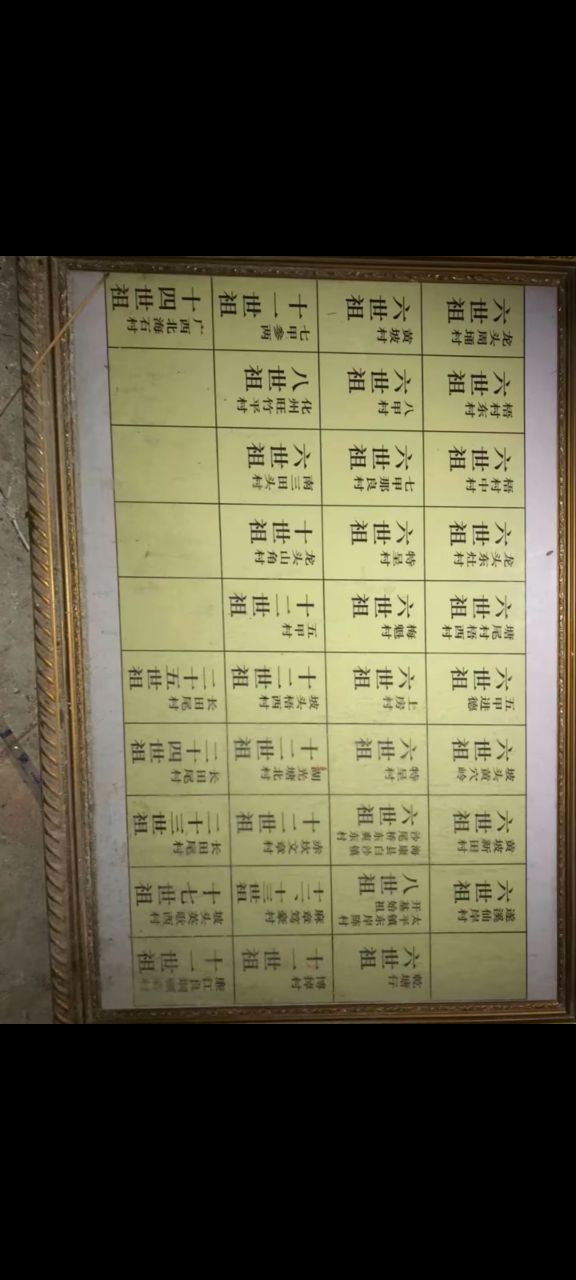 遂溪仙岸村
六世祖
黄坡新田
六世祖
坡头黄穴岭
六世祖
五甲进德
六世祖
塘尾村梧西村
六世祖
龙头东灶
六世祖
梧村中村
六世祖
梧村东村
六世祖
龙头周埇村
六世祖
乾塘行
六世祖
太平镇东岸陈
开基始祖
八世祖
海康县白沙镇
六世祖
特呈村
六世祖
上房村
六世祖
梅魁村
六世祖
特呈村
六世祖
七甲那良村
六世祖
八甲村
六世祖
黄坡村
六世祖
博掉村
十一世祖
麻章笃豪村
十二、十三世祖
赤坎文章村
十二世祖
湖光塘北村
十二世祖
坡头梧西村
十二世祖
五甲村
十二世祖
龙头山角村
十世祖
南三田头村
六世祖
化州旺竹平村
八世祖
七甲参两
十一世祖
廉江良垌镇
十一世祖
坡头英歌西村
十七世祖
长田尾村
二十三世祖
长田尾村
二十四世祖
长田尾村
二十五世祖
广西北海石村
十四世祖